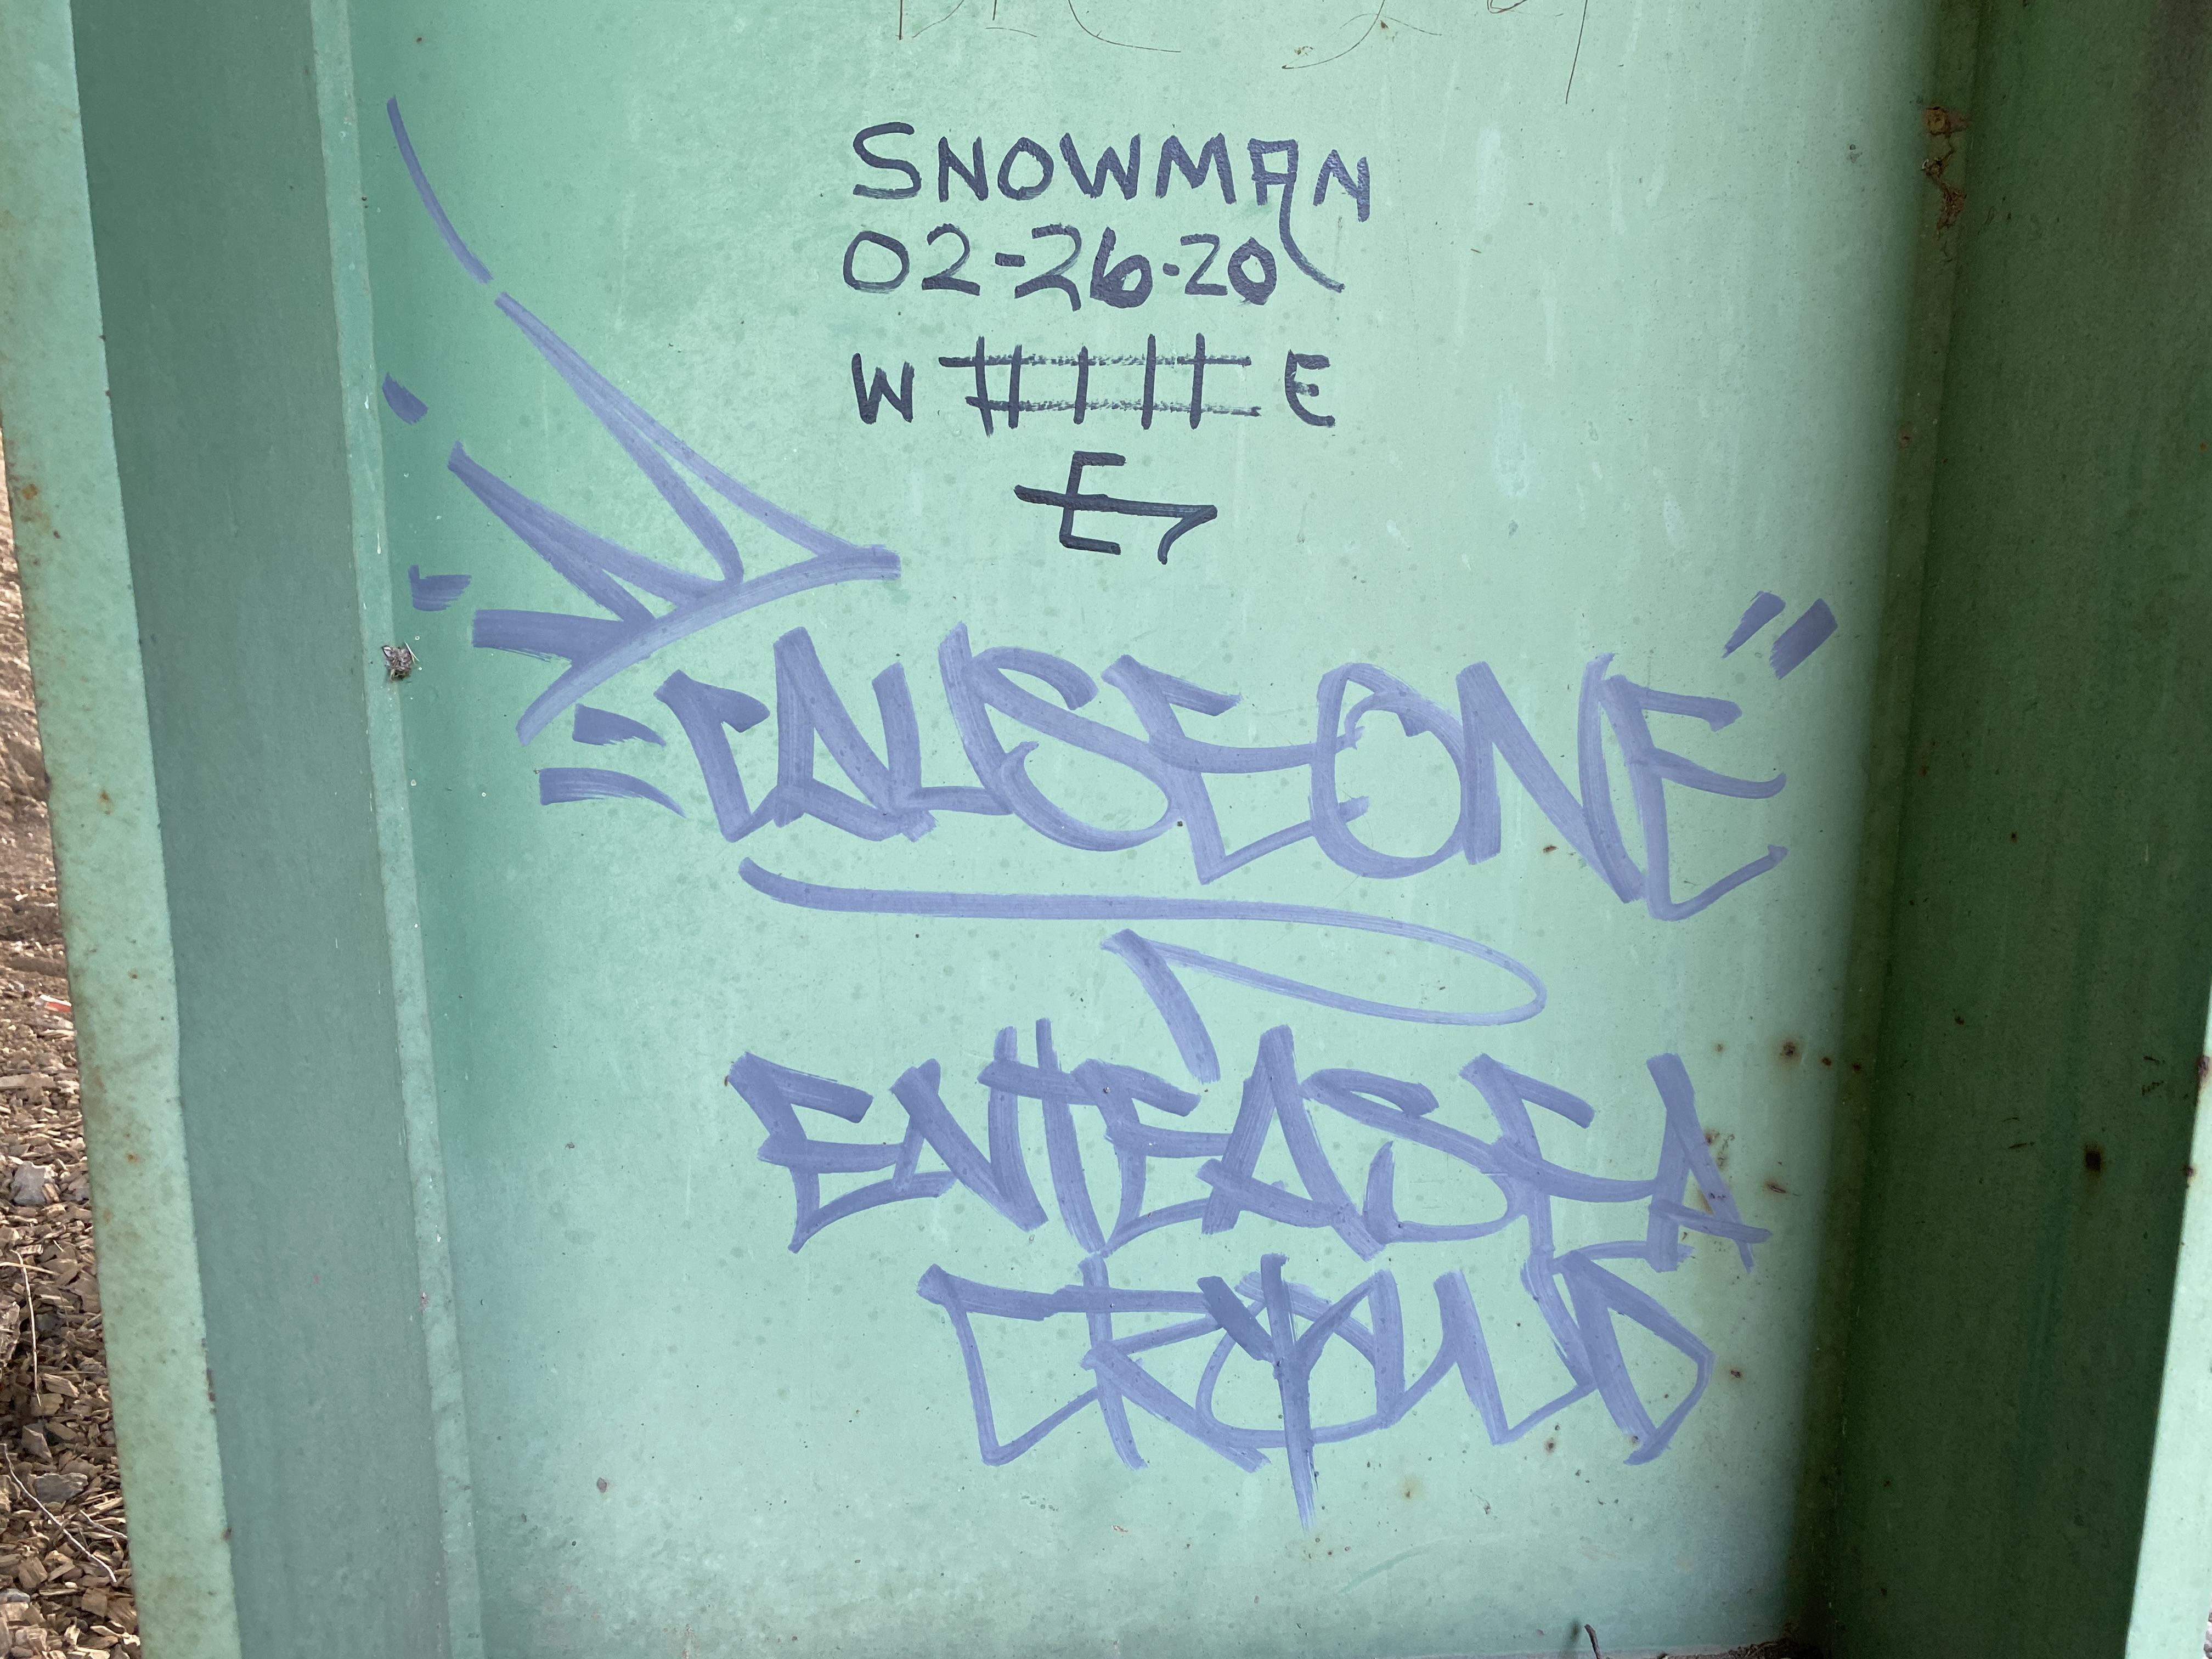 SNOWMAN
02-26-20
W E
E
CAUSEONE
ENTEASEA
CROWD